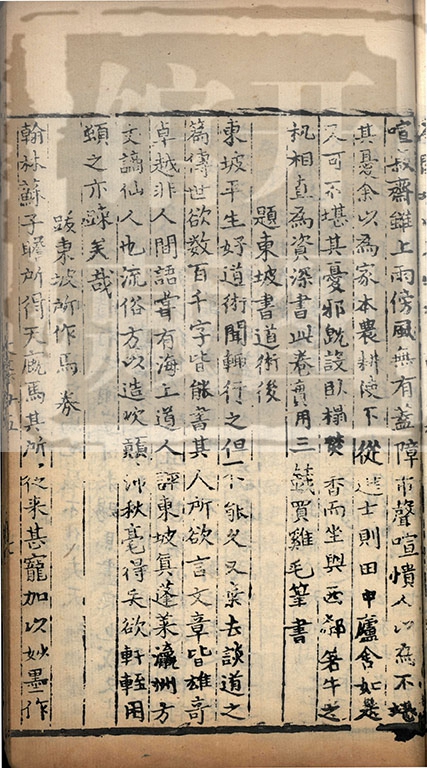 喧寂齋雖上雨傍風無有蓋障市聲喧憒人以為不堪
其憂余以為家本農耕使不從進士則田中廬舍如是
又可不堪其憂邪既設臥榻焚香而坐與西鄰箸牛之
机相直為資深書此卷實用三錢買雞毛筆書
題東坡書道術後
東坡平生好道術聞輒行之但不能久又棄去談道之
篇傳世欲數百千字皆能書其人所欲言文章皆雄奇
卓越非人間語嘗有海上道人評東坡真蓬萊瀛洲方
丈謫仙人也流俗方以造次顛沛秋毫得失欲軒輊困
頓之亦疎矣哉
跋東坡所作馬券
翰林蘇子瞻所得天廄馬其所從來甚寵加以妙墨作